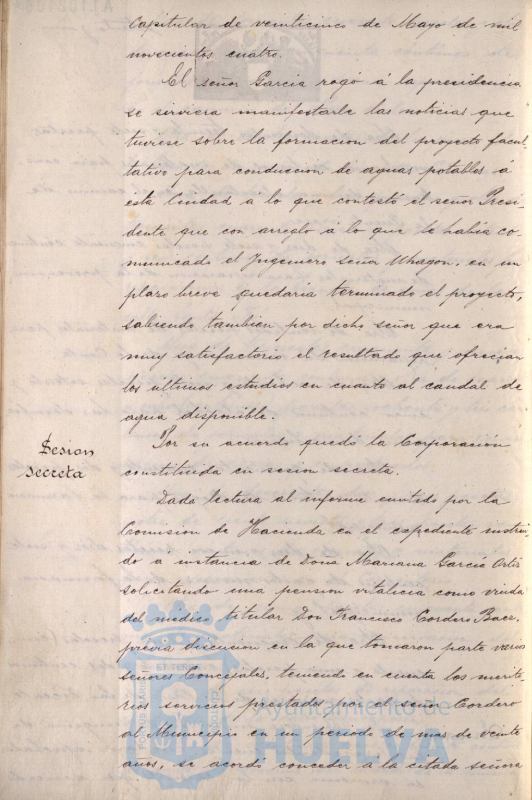 capitular de veinticinco de Mayo de mil
novecientos cuatro.
El señor García rogó á la presidencia
se sirviera manifestarle las noticias que
tuviese sobre la formacion del proyecto facul-
tativo para conduccion de aguas potables á
esta Ciudad á lo que contestó el señor Presi-
dente que con arreglo á lo que le habia co-
municado el Ingeniero señor Uhagon, en un
plazo breve quedaria terminado el proyecto,
sabiendo tambien por dicho señor que era
muy satisfactorio el resultado que ofrecian
los últimos estudios en cuanto al caudal de
agua disponible.
Sesion
secreta
Por su acuerdo quedó la Corporación
constituida en sesion secreta.
Dada lectura al informe emitido por la
Comision de Hacienda en el expediente instrui-
do a instancia de Doña Mariana García Ortiz
solicitando una pension vitalicia como viuda
del medico titular Don Francisco Cordero Baes,
previa discusion en la que tomaron parte varios
señores Concejales, teniendo en cuenta los merito-
rios servicios prestados por el señor Cordero
al Municipio en un periodo de mas de veinte
años, se acordó conceder á la citada señora
Ayuntamiento de
HUELVA